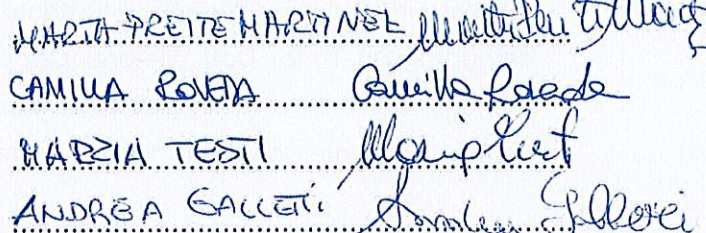 MARTA PREITE MARTINEZ
CAMILLA ROVEDA Camilla Roveda
MARZIA TESTI
ANDREA GALLETTI Andrea